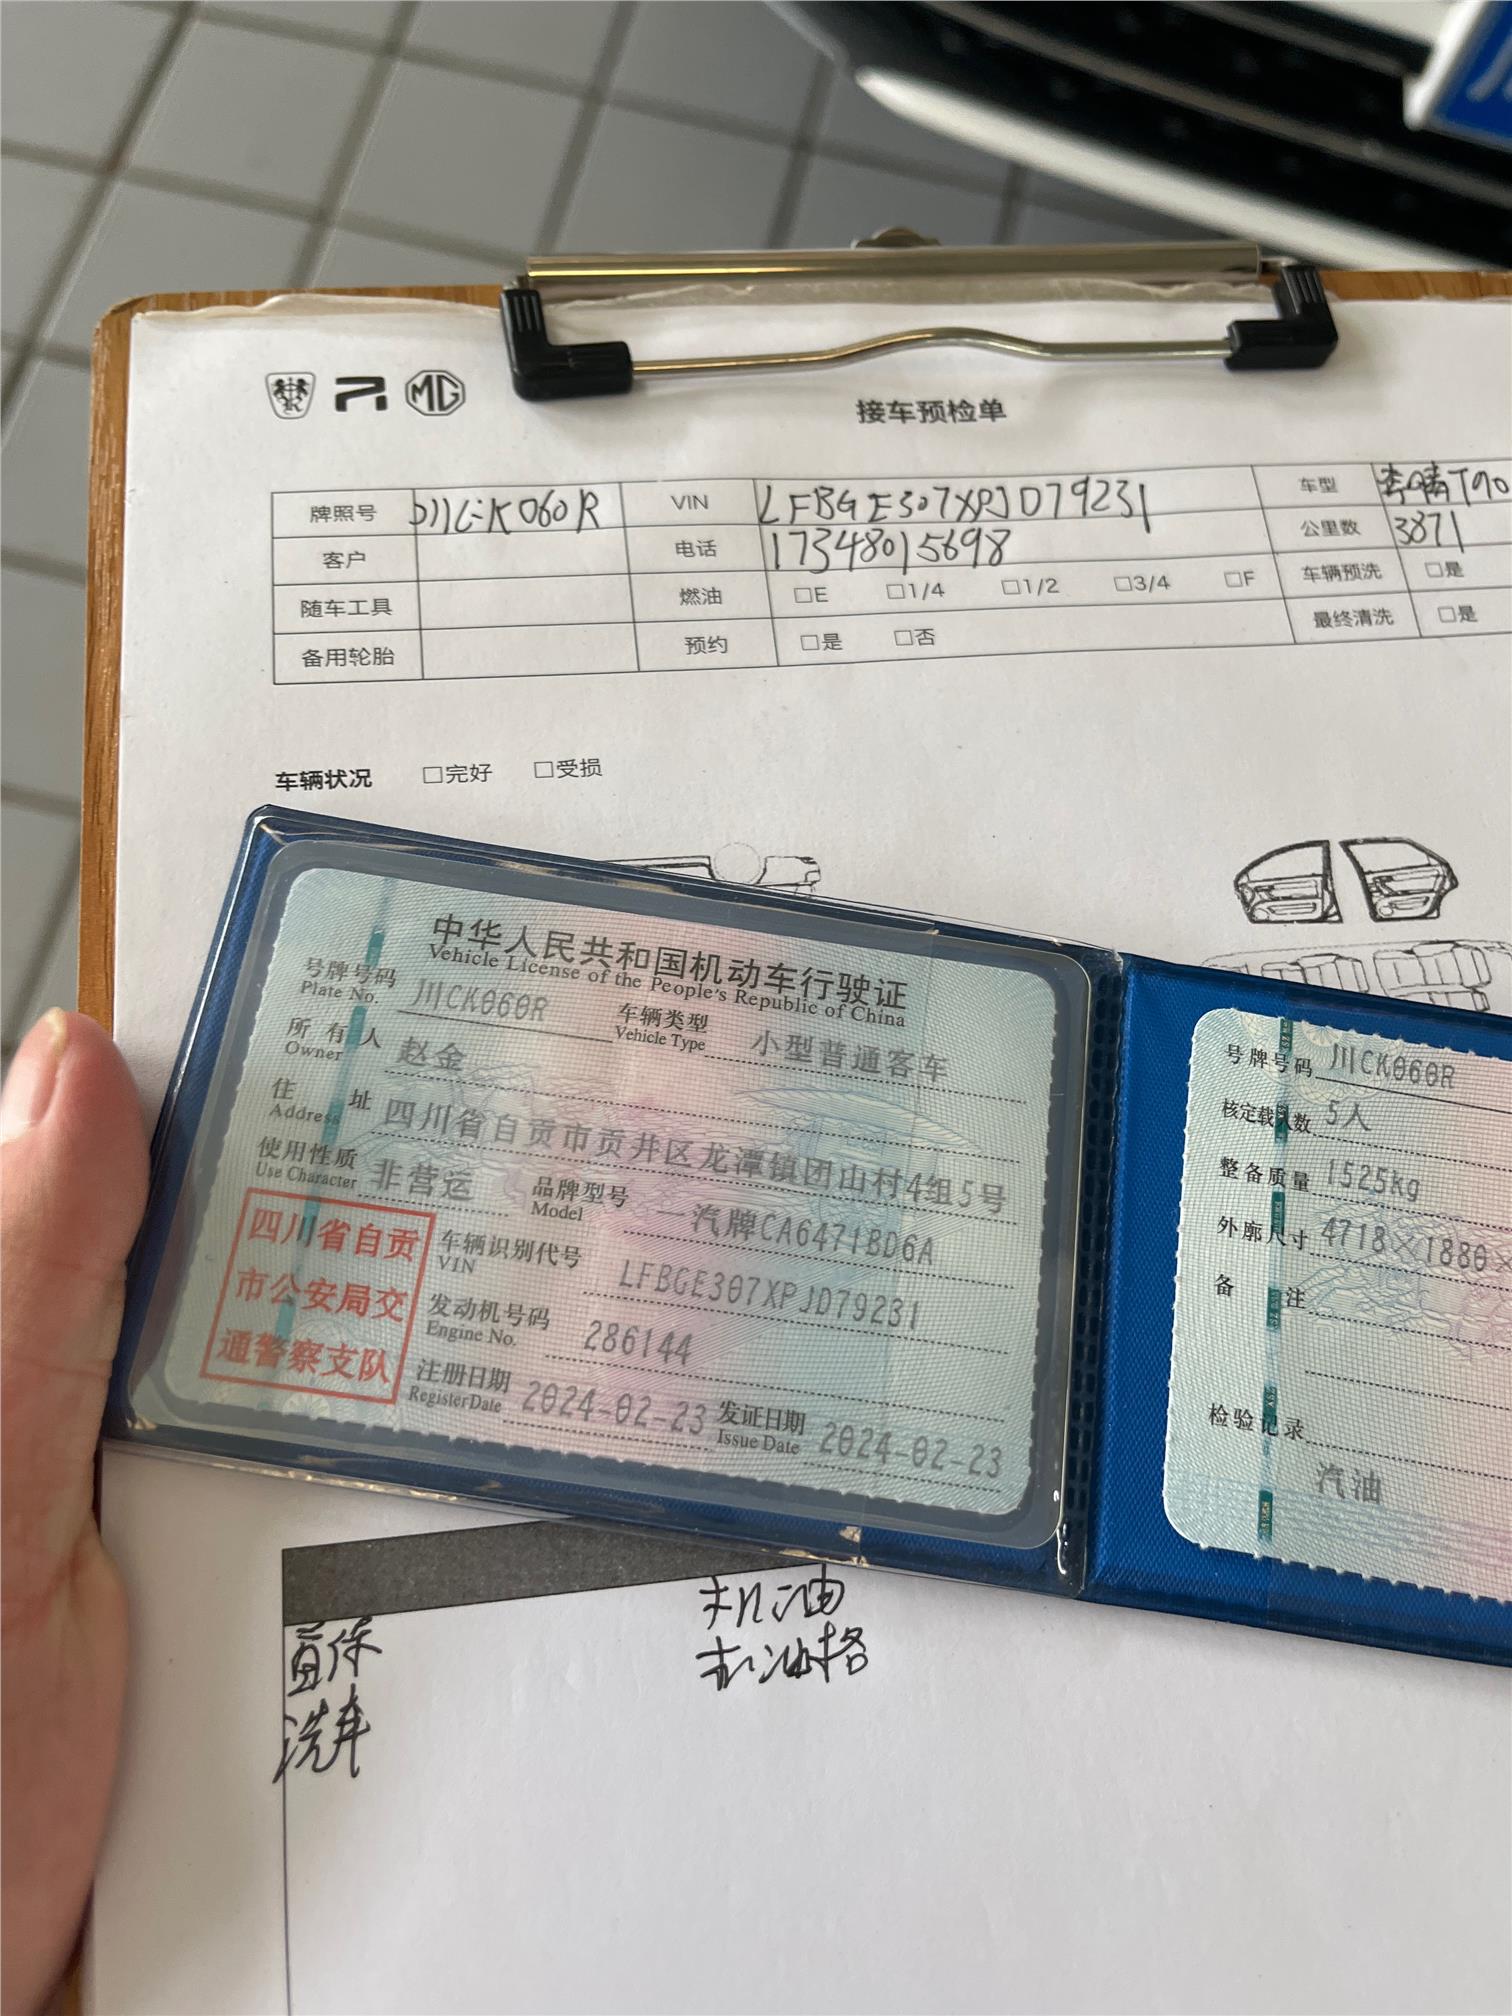 MG
接车预检单
牌照号 川CK060R VIN LFBGE307XPJD79231 车型 奔腾T90
客户 电话 17348015698 公里数 3871
随车工具 燃油 □E □1/4 □1/2 □3/4 □F 车辆预洗 □是
备用轮胎 预约 □是 □否 最终清洗 □是
车辆状况 □完好 □受损
中华人民共和国机动车行驶证
Vehicle License of the People's Republic of China
号牌号码 川CK060R 车辆类型 小型普通客车
Plate No. Vehicle Type
所有人 赵金
Owner
住址 四川省自贡市贡井区龙潭镇团山村4组5号
Address
使用性质 非营运 品牌型号 一汽牌CA6471BD6A
Use Character Model
四川省自贡
市公安局交
通警察支队
车辆识别代号 LFBGE307XPJD79231
VIN
发动机号码 286144
Engine No.
注册日期 2024-02-23 发证日期 2024-02-23
Register Date Issue Date
号牌号码 川CK060R
核定载人数 5人
整备质量 1525kg
外廓尺寸 4718×1880×
备注
检验记录
汽油
首保 机油
机油格
洗车